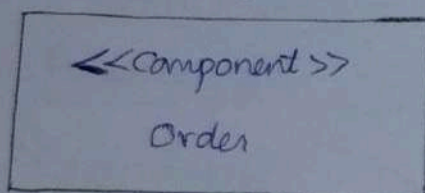 <<Component>>
Order